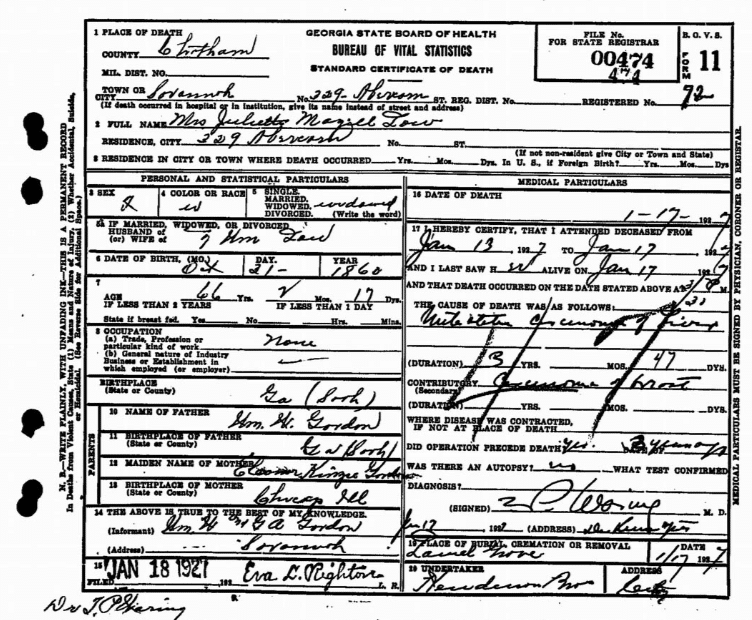 1 PLACE OF DEATH
COUNTY Chatham
MIL. DIST. NO.
TOWN OR CITY Savannah No. 329 Abercorn ST. REG. DIST. No. REGISTERED No. 72
(If death occurred in hospital or in institution, give its name instead of street and address)
GEORGIA STATE BOARD OF HEALTH
BUREAU OF VITAL STATISTICS
STANDARD CERTIFICATE OF DEATH
FILE No.
FOR STATE REGISTRAR
00474
474
B. O. V. S.
FORM 11
2 FULL NAME Mrs Juliette Low
RESIDENCE, CITY 329 Abercorn No. ST.
(If not non-resident give City or Town and State)
3 RESIDENCE IN CITY OR TOWN WHERE DEATH OCCURRED Yrs. Mos. Dys. In U. S., if Foreign Birth? Yrs. Mos. Dys.
PERSONAL AND STATISTICAL PARTICULARS
3 SEX
4 COLOR OR RACE w
5 SINGLE, MARRIED, WIDOWED, OR DIVORCED. widowed (Write the word)
5A IF MARRIED, WIDOWED, OR DIVORCED
HUSBAND OF
(or) WIFE of Wm Low
6 DATE OF BIRTH, (MO.) Oct DAY. 31- YEAR 1860
7
AGE 66 Yrs. 2 Mos. 17 Dys.
IF LESS THAN 2 YEARS IF LESS THAN 1 DAY
State if breast fed. Yes No Hrs. Mins.
8 OCCUPATION
(a) Trade, Profession or particular kind of work None
(b) General nature of Industry Business or Establishment in which employed (or employer)
BIRTHPLACE
(State or County) Ga
PARENTS
10 NAME OF FATHER Wm. W. Gordon
11 BIRTHPLACE OF FATHER
(State or County) Ga
12 MAIDEN NAME OF MOTHER Eleanor Kinzie Gordon
13 BIRTHPLACE OF MOTHER
(State or County) Chicago Ill
14 THE ABOVE IS TRUE TO THE BEST OF MY KNOWLEDGE.
(Informant) Gordon
(Address) Savannah
15
FILED JAN 18 1927 192 Eva L. L. R.
MEDICAL PARTICULARS
16 DATE OF DEATH
1-17- 1927
17 I HEREBY CERTIFY, THAT I ATTENDED DECEASED FROM
Jan 13 1927 TO Jan 17 1927
AND I LAST SAW H er ALIVE ON Jan 17 1927
AND THAT DEATH OCCURRED ON THE DATE STATED ABOVE AT M.
THE CAUSE OF DEATH WAS AS FOLLOWS:
Carcinoma of liver
(DURATION) 3 YRS. MOS. 47 DYS.
CONTRIBUTORY Carcinoma of breast
(Secondary)
(DURATION) YRS. MOS. DYS.
WHERE DISEASE WAS CONTRACTED,
IF NOT AT PLACE OF DEATH
DID OPERATION PRECEDE DEATH? Yes.
WAS THERE AN AUTOPSY? no WHAT TEST CONFIRMED
DIAGNOSIS?
(SIGNED) Waring M. D.
192 (ADDRESS)
19 PLACE OF BURIAL, CREMATION OR REMOVAL DATE
Laurel Grove 1/17 1927
20 UNDERTAKER ADDRESS
Henderson Bros City
Dr T. P. Waring
N. B.—WRITE PLAINLY, WITH UNFADING INK—THIS IS A PERMANENT RECORD
In Deaths from Violent Causes, State (1) Means and Nature of Injury, (2) Whether Accidental, Suicide, or Homicidal. (See Reverse Side for Additional Space.)
MEDICAL PARTICULARS MUST BE SIGNED BY PHYSICIAN, CORONER OR REGISTRAR.